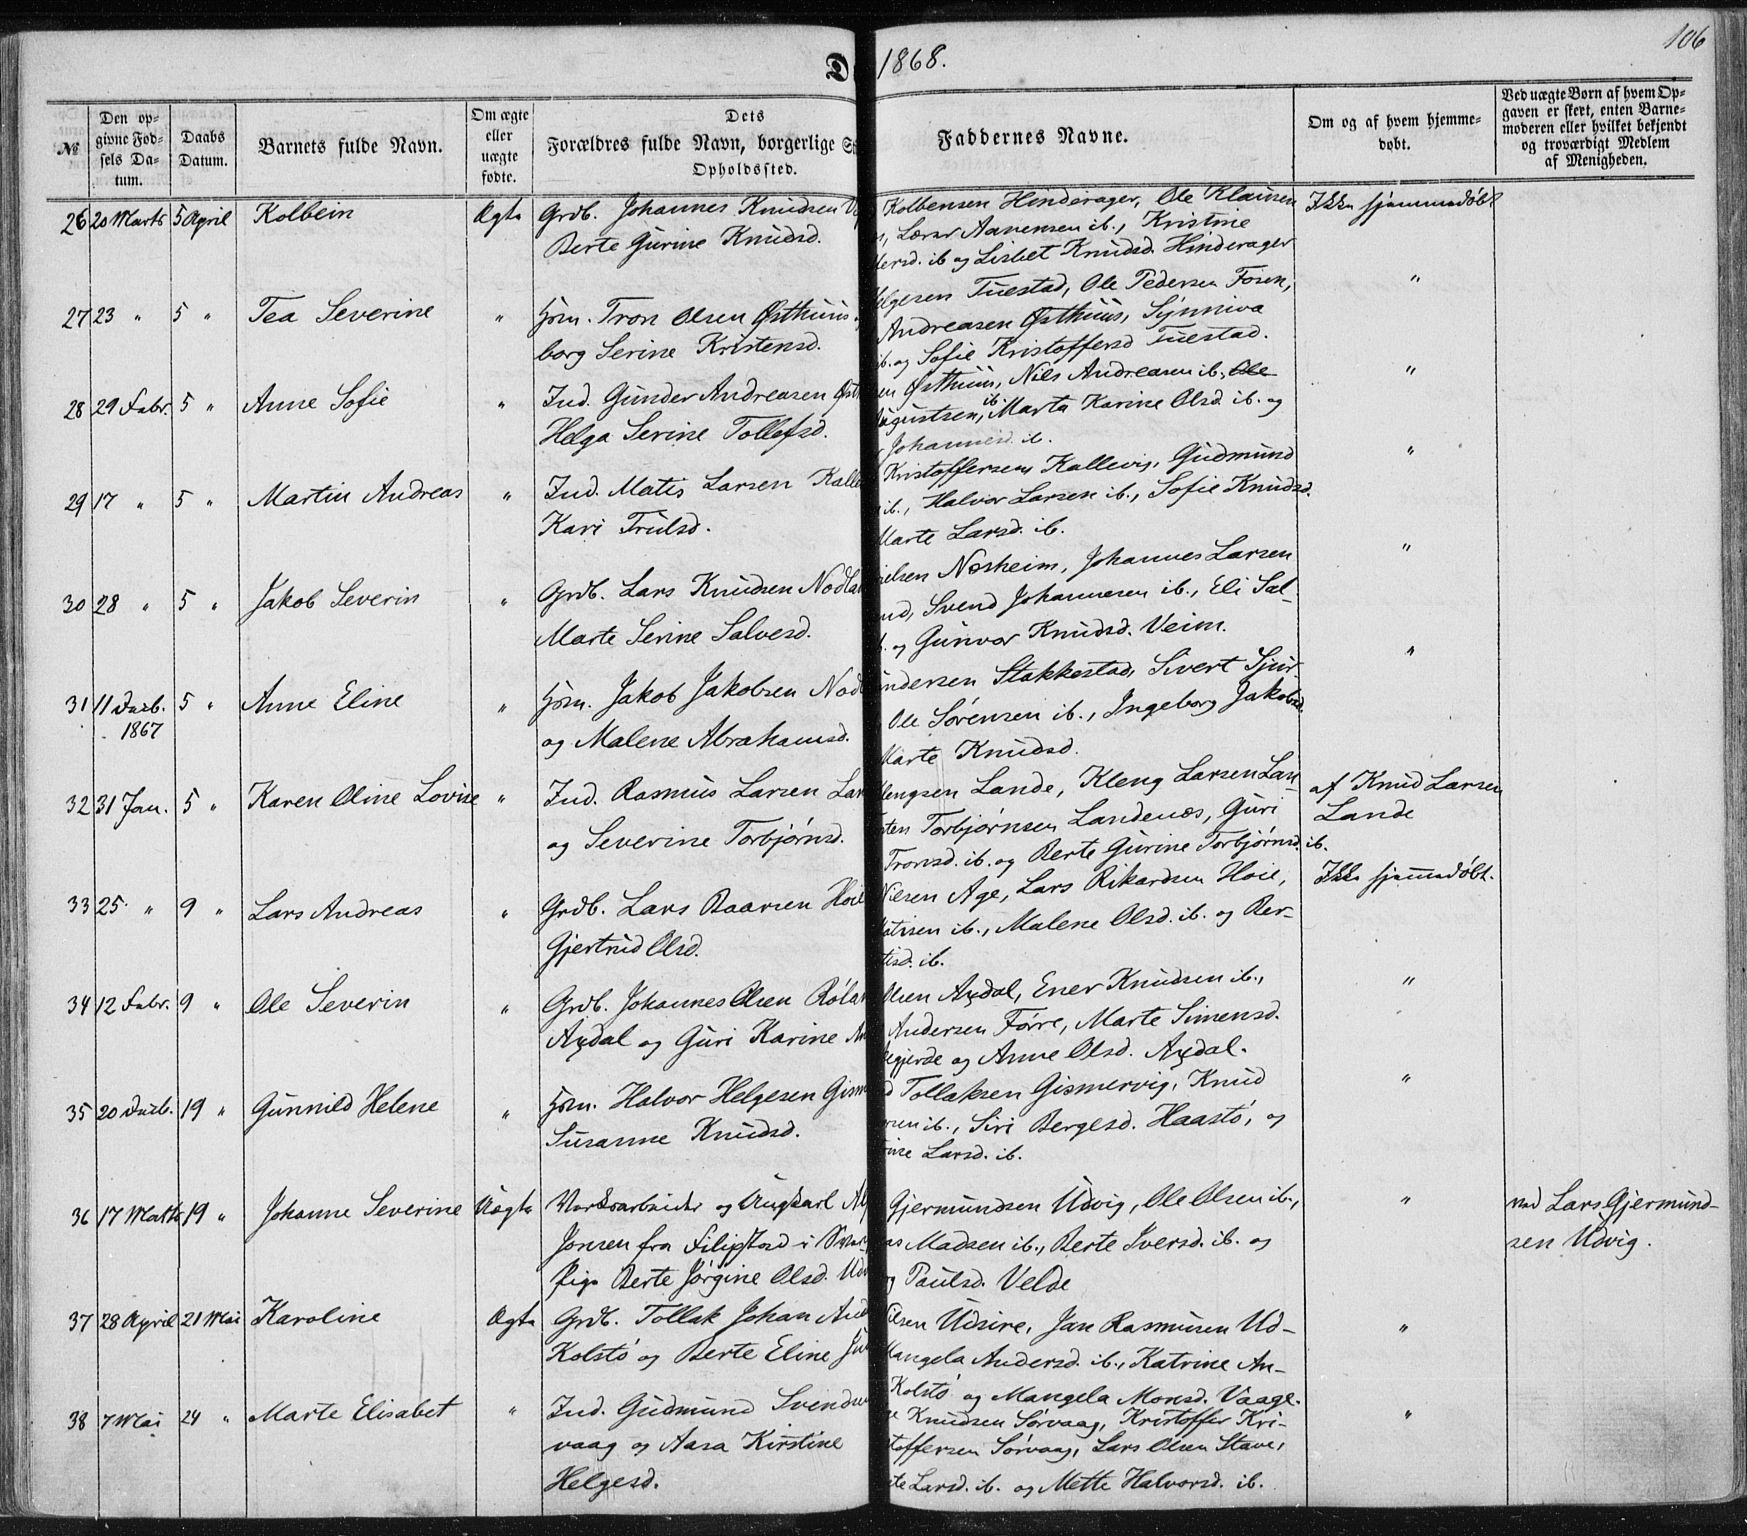 D 1868. 106
№
Den op-
givne Fød-
sels Da-
tum.
Daabs
Datum.
Barnets fulde Navn.
Om ægte
eller
uægte
fødte.
Dets
Forældres fulde Navn, borgerlige S
Opholdssted.
Faddernes Navne.
Om og af hvem hjemme-
døbt.
Ved uægte Børn af hvem Op-
gaven er skeet, enten Barne-
moderen eller hvilket bekjendt
og troværdigt Medlem
af Menigheden.
26 20 Marts 5 April Kolbein Ægte Grdb. Johannes Knudsen
Berte Gurine Knudsd.
Kolbensen Hinderager, Ole Klausen
Lærer Aanensen ib., Kristine
ib og Lisbet Knudsd. Hinderager
Ikke hjemmedøbt
27 23 " 5 " Tea Severine " Hsm. Tron Olsen Østhuus
borg Serine Kristensd.
Tuestad, Ole Pedersen Fosen,
Andreasen Østhuus, Synniva
ib. og Sofie Kristoffersd Tuestad.
"
28 29 Febr. 5 " Anne Sofie " Ind. Gunder Andreasen Øst
Helga Serine Tollefsd.
en Østhuus, Nils Andreasen ib., Ole
ugustsen, ib. Marta Karine Olsd. ib. og
Johannesd. ib.
"
29 17 " 5 " Martin Andreas " Ind. Matis Larsen Kalle
Kari Trulsd.
Kristoffersen Kallevig, Gudmund
ib., Halvor Larsen ib., Sofie Knudsd.
Marte Larsd. ib.
"
30 28 " 5 " Jakob Severin " Grdb. Lars Knudsen Nodla
Marte Serine Salvesd.
ielsen Nesheim, Johannes Larsen
nd, Svend Johannesen ib., Eli Sal-
og Gunvor Knudsd. Veim.
"
31 11 Decb. 5 " Anne Eline " Hsm. Jakob Jakobsen Nodl
1867
og Malene Abrahamsd.
ndersen Stakkestad, Sivert Sjur-
Ole Sørensen ib., Ingeborg Jakobsd.
Marte Knudsd.
"
32 31 Jan. 5 " Karen Oline Lovise " Ind. Rasmus Larsen Lan
og Severine Torbjørnsd.
lengsen Lande, Kleng Larsen Lan-
ten Torbjørnsen Landenæs, Guri
Tronsd. ib. og Berte Gurine Torbjørnsd. ib.
af Knud Larsen
Lande
33 25 " 9 " Lars Andreas " Grdb. Lars Baarsen Hoie
Gjertrud Olsd.
Nilsen Age, Lars Rikardsen Hoie,
atisen ib., Malene Olsd. ib. og Ber-
tisd. ib.
Ikke hjemmedøbt.
34 12 Febr. 9 " Ole Severin " Grdb. Johannes Olsen Røla
Axdal og Guri Karine An
Olsen Axdal, Ener Knudsen ib.,
Andersen Førre, Marte Simensd.
egjerde og Anne Olsd. Axdal.
"
35 20 Decb. 19 " Gunnild Helene " Hsm. Halvor Helgesen Gism
Susanne Knudsd.
d Tollaksen Gismervig, Knud
rsen ib., Siri Bergesd. Haastø, og
rine Larsd. ib.
"
36 17 Marts 19 " Johanne Severine Uægte Værksarbeider og Ungkarl
Jonsen fra Filipstad i Sve
Pige Berte Jørgine Olsd. Udv
Gjermundsen Udvig, Ole Olsen ib.,
as Madsen ib., Berte Iversd. ib. og
g Paulsd. Velde
"
ved Lars Gjermund-
sen Udvig.
37 28 April 21 Mai Karoline Ægte Grdb. Tollak Johan And
Kolstø og Berte Eline
ilsen Udsire, Jan Rasmusen Ud-
Mangela Andersd. ib., Katrine An-
Kolstø og Mangela Monsd. Vaage.
"
38 7 Mai 24 " Marte Elisabet " Ind. Gudmund Svends
vaag og Aasa Kirstine
Helgesd.
Knudsen Sørvaag, Kristoffer Kri-
toffersen Sørvaag, Lars Olsen Stave,
te Larsd. ib. og Mette Halvorsd. ib.
"